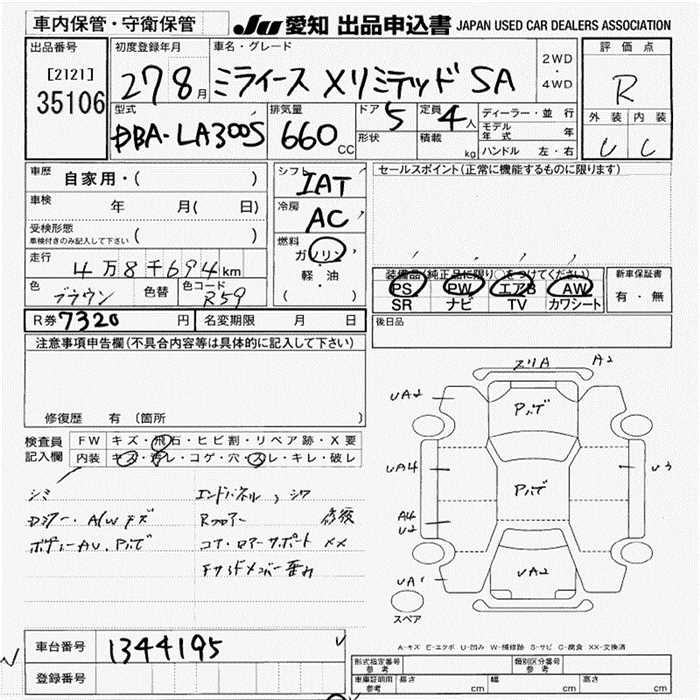 車内保管・守衛保管
JU 愛知 出品申込書 JAPAN USED CAR DEALERS ASSOCIATION
出品番号
[2121]
35106
初度登録年月
27 8月
車名・グレード
ミライース Xリミテッド SA
2WD
・
4WD
評価点
R
外装 内装
型式
DBA-LA300S
排気量
660 CC
ドア 5
形状
定員 4人
積載 kg
ディーラー・並行
モデル年式 年
ハンドル 左・右
車歴
自家用・( )
車検 年 月( 日)
受検形態
車検付きのみ記入して下さい ( )
走行
4万8千694km
色 ブラウン 色替 色コード R59
シフト
IAT
冷房
AC
燃料
ガソリン
・
軽・油
( )
セールスポイント(正常に機能するものに限ります)
装備品(純正品に限り○をつけてください)
PS PW エアB AW
SR ナビ TV カワシート
新車保証書
有・無
R券 7320 円 名変期限 月 日
後日品
注意事項申告欄(不具合内容等は具体的に記入して下さい)
修復歴 有 (箇所 )
検査員
記入欄
FW キズ・飛石・ヒビ割・リペア跡・X要
内装 キズ・汚レ・コゲ・穴・スレ・キレ・破レ
シミ
A/Wキズ
エンドパネル, シワ
Rフロアー 修後
コア・ロアーサポート XX
スリA A2
UA2
UA4
A4
U2
UA1
U3
UA2
スペア
A-キズ E-エクボ U-凹み W-補修跡 S-サビ C-腐食 XX-交換済
車台番号 1344195
登録番号
形式指定番号
参考
類別区分番号
参考
車庫証明用
参考
長さ cm 幅 cm 高さ cm